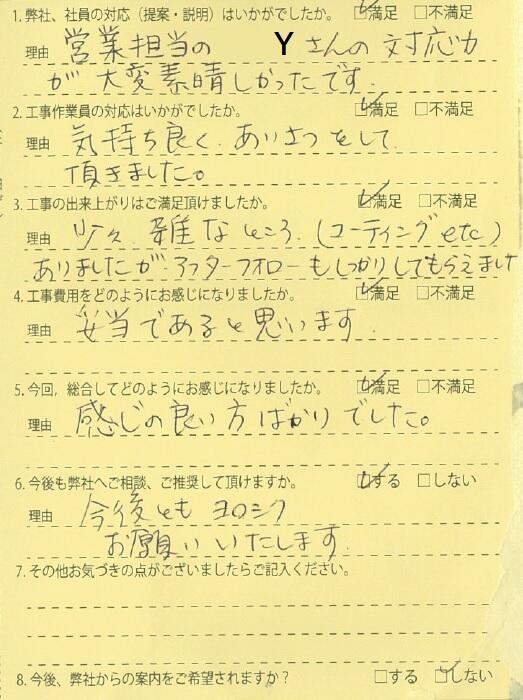 1. 弊社、社員の対応（提案・説明）はいかがでしたか。 ☑満足 □不満足
理由 営業担当の Yさんの 対応力
が 大変素晴しかったです.
2. 工事作業員の対応はいかがでしたか。 ☑満足 □不満足
理由 気持ち良く、あいさつをして
頂きました。
3. 工事の出来上がりはご満足頂けましたか。 ☑満足 □不満足
理由 少々 雑なところ.（コーティングetc）
ありましたが、アフターフォローもしっかりしてもらえまして
4. 工事費用をどのようにお感じになりましたか。 ☑満足 □不満足
理由 妥当であると思います.
5. 今回，総合してどのようにお感じになりましたか。 ☑満足 □不満足
理由 感じの良い方ばかりでした。
6. 今後も弊社へご相談、ご推奨して頂けますか。 ☑する □しない
理由 今後とも ヨロシク
お願いいたします.
7. その他お気づきの点がございましたらご記入ください。
8. 今後、弊社からの案内をご希望されますか？ □する ☑しない